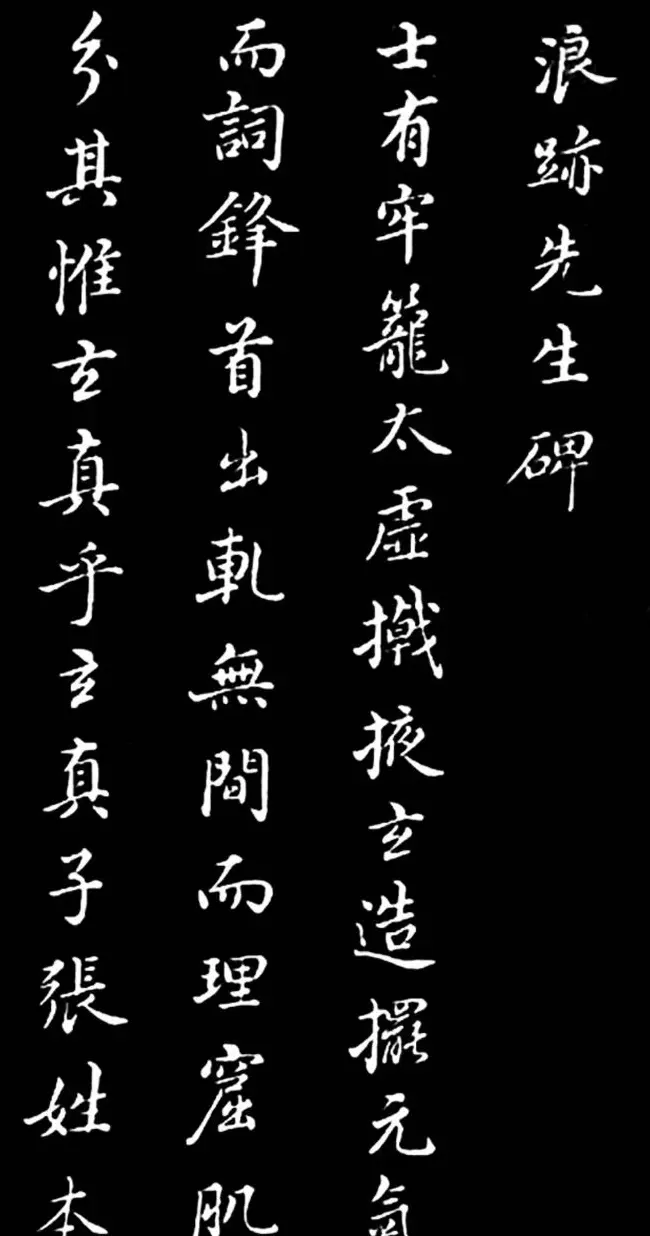 浪跡先生碑
士有牢籠太虛撠掖玄造擺元氣
而詞鋒首出軋無間而理窟肌
分其惟玄真乎玄真子張姓本